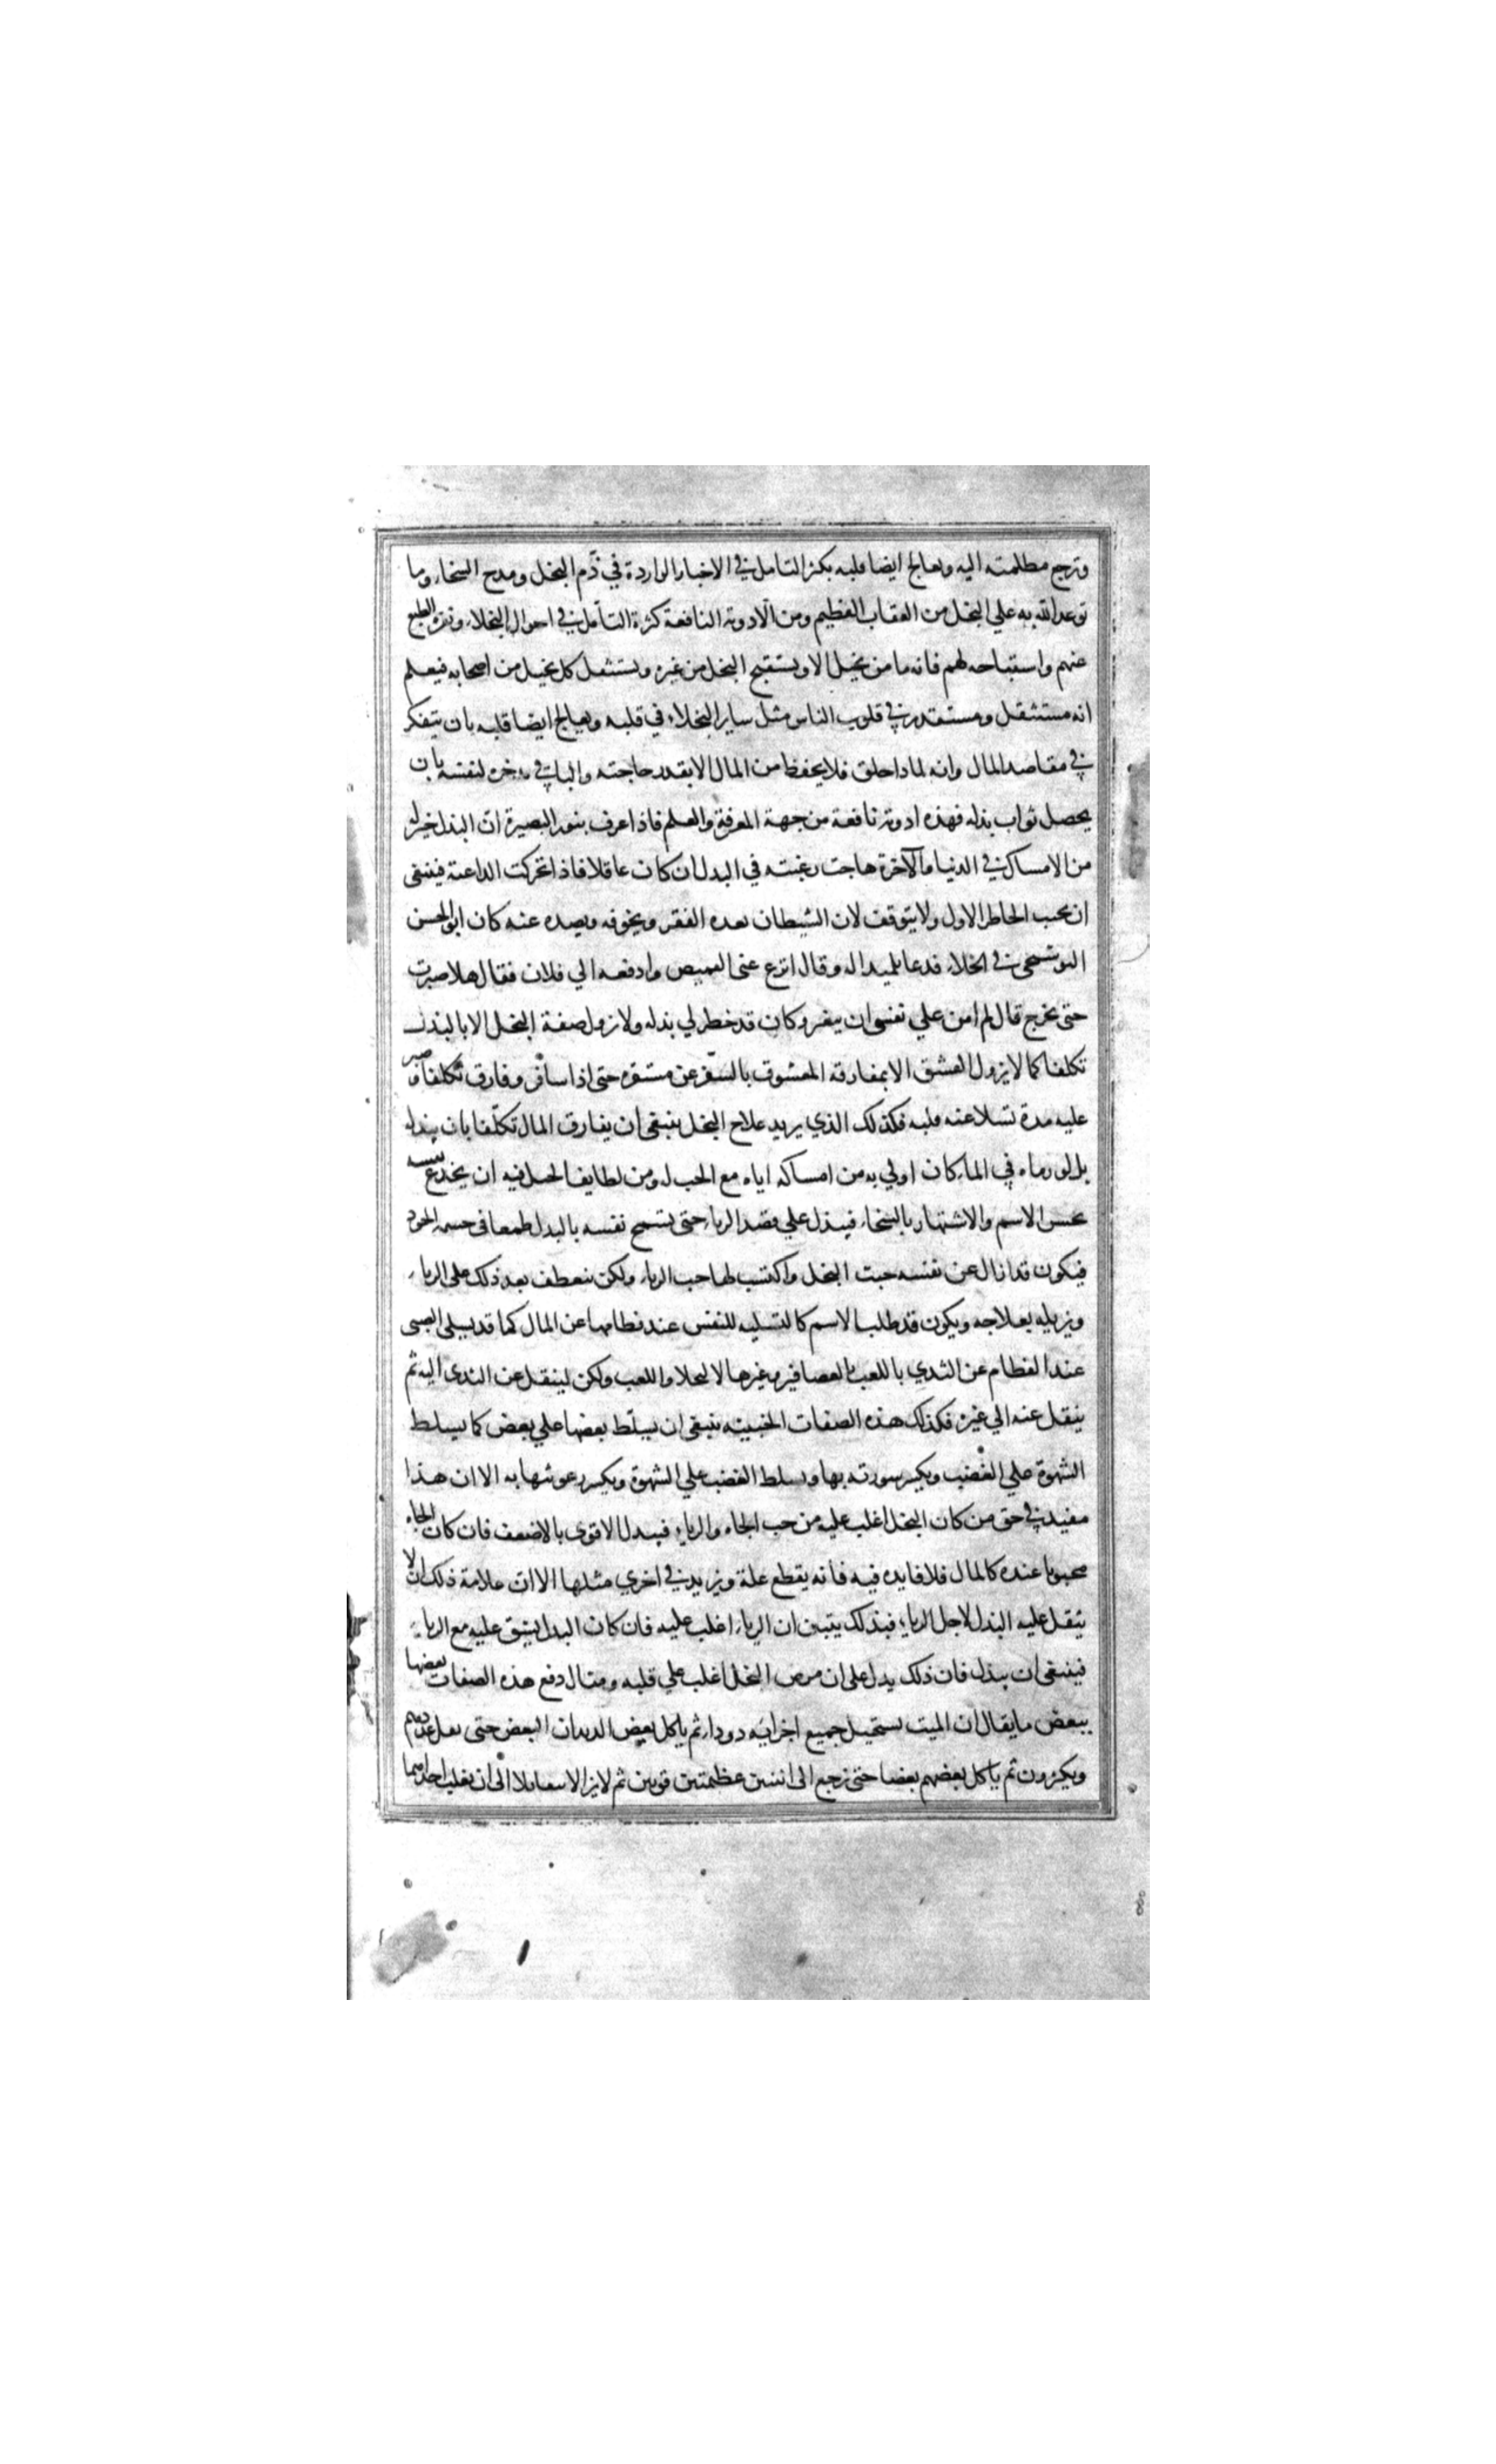 وترجع مظلمته اليه ويعالج ايضا قلبه بكثرة التامل في الاخبار الواردة في ذّم البخل ومدح السخاء وما
توعد الله به علي البخل من العقاب العظيم ومن الادوية النافعة كثرة التأمل في احوال البخلاء ونفرة الطبع
عنهم واستقباحه لهم فانه ما من بخيل الا ويستقبح البخل من غيره ويستثقل كل بخيل من اصحابه فيعلم
انه مستثقل ومستقذر في قلوب الناس مثل ساير البخلاء في قلبه ويعالج ايضا قلبه بان يتفكر
في مقاصد المال وانه لماذا خلق فلا يحفظ من المال الا بقدر حاجته والباقي يدخره لنفسه بان
يحصل ثواب بذله فهذه ادوية نافعة من جهة المعرفة والعلم فاذا عرف بنور البصيرة ان البذل خير له
من الامساك في الدنيا والآخرة هاجت رغبته في البذل ان كان عاقلا فاذا تحركت الداعية فينبغي
ان يجيب الخاطر الاول ولا يتوقف لان الشيطان يعده الفقر ويخوفه ويصده عنه كان ابو الحسن
البوشنجي في الخلاء فدعا تلميذا له وقال انزع عني القميص وادفعه الي فلان فقال هلا صبرت
حتي تخرج قال لم امن علي نفسي ان يتغير وكان قد خطر لي بذله ولا تزول صفة البخل الا بالبذل
تكلفا كما لا يزول العشق الا بمفارقة المعشوق بالسّفر عن مستقره حتى اذا سافر وفارق تكلفا وصبر
عليه مدة تسلا عنه قلبه فكذلك الذي يريد علاج البخل ينبغي ان يفارق المال تكلّفا بان يبذله
بل لو رماه في الماء كان اولي به من امساكه اياه مع الحب له ومن لطايف الحيل فيه ان يخدع نفسه
بحسن الاسم والاشتهار بالسخاء فيبذل علي قصد الرياء حتى تسمح نفسه بالبذل طمعا في حشمة الجود
فيكون قد ازال عن نفسه خبث البخل واكتسب لها خبث الرياء ولكن ينعطف بعد ذلك على الرياء
ويزيله بعلاجه ويكون قد طلب الاسم كالتسلية للنفس عند فطامها عن المال كما قد يسلى الصبى
عند الفطام عن الثدي باللعب بالعصافير وغيرها لا ليخلا واللعب ولكن لينقل عن الثدى اليه ثم
ينقل عنه الي غيره فكذلك هذه الصفات الخبيثه ينبغي ان يسلّط بعضها علي بعض كما يسلط
الشهوة علي الغضب ويكسر سورته بها ويسلط الغضب علي الشهوة ويكسر رعونتها به الا ان هذا
مفيد في حق من كان البخل اغلب عليه من حب الجاه والرياء فيبدل الاقوى بالاضعف فان كان الجاه
محبوبا عنده كالمال فلا فايده فيه فانه يقطع علة ويزيد في اخري مثلها الا ان علامة ذلك ان لا
يثقل عليه البذل لاجل الرياء فبذلك يتبين ان الرياء اغلب عليه فان كان البذل يشق عليه مع الرياء
فينبغي ان يبذل فان ذلك يدل على ان مرض البخل اغلب علي قلبه ومثال دفع هذه الصفات بعضها
ببعض ما يقال ان الميت يستحيل جميع اجزايه دودا ثم ياكل بعض الديدان البعض حتى يقل عددهم
ويكبرون ثم ياكل بعضهم بعضا حتى ترجع الى اثنتين عظيمتين قويين ثم لا يزالا يتقاتلا الى ان يغلب احداهما